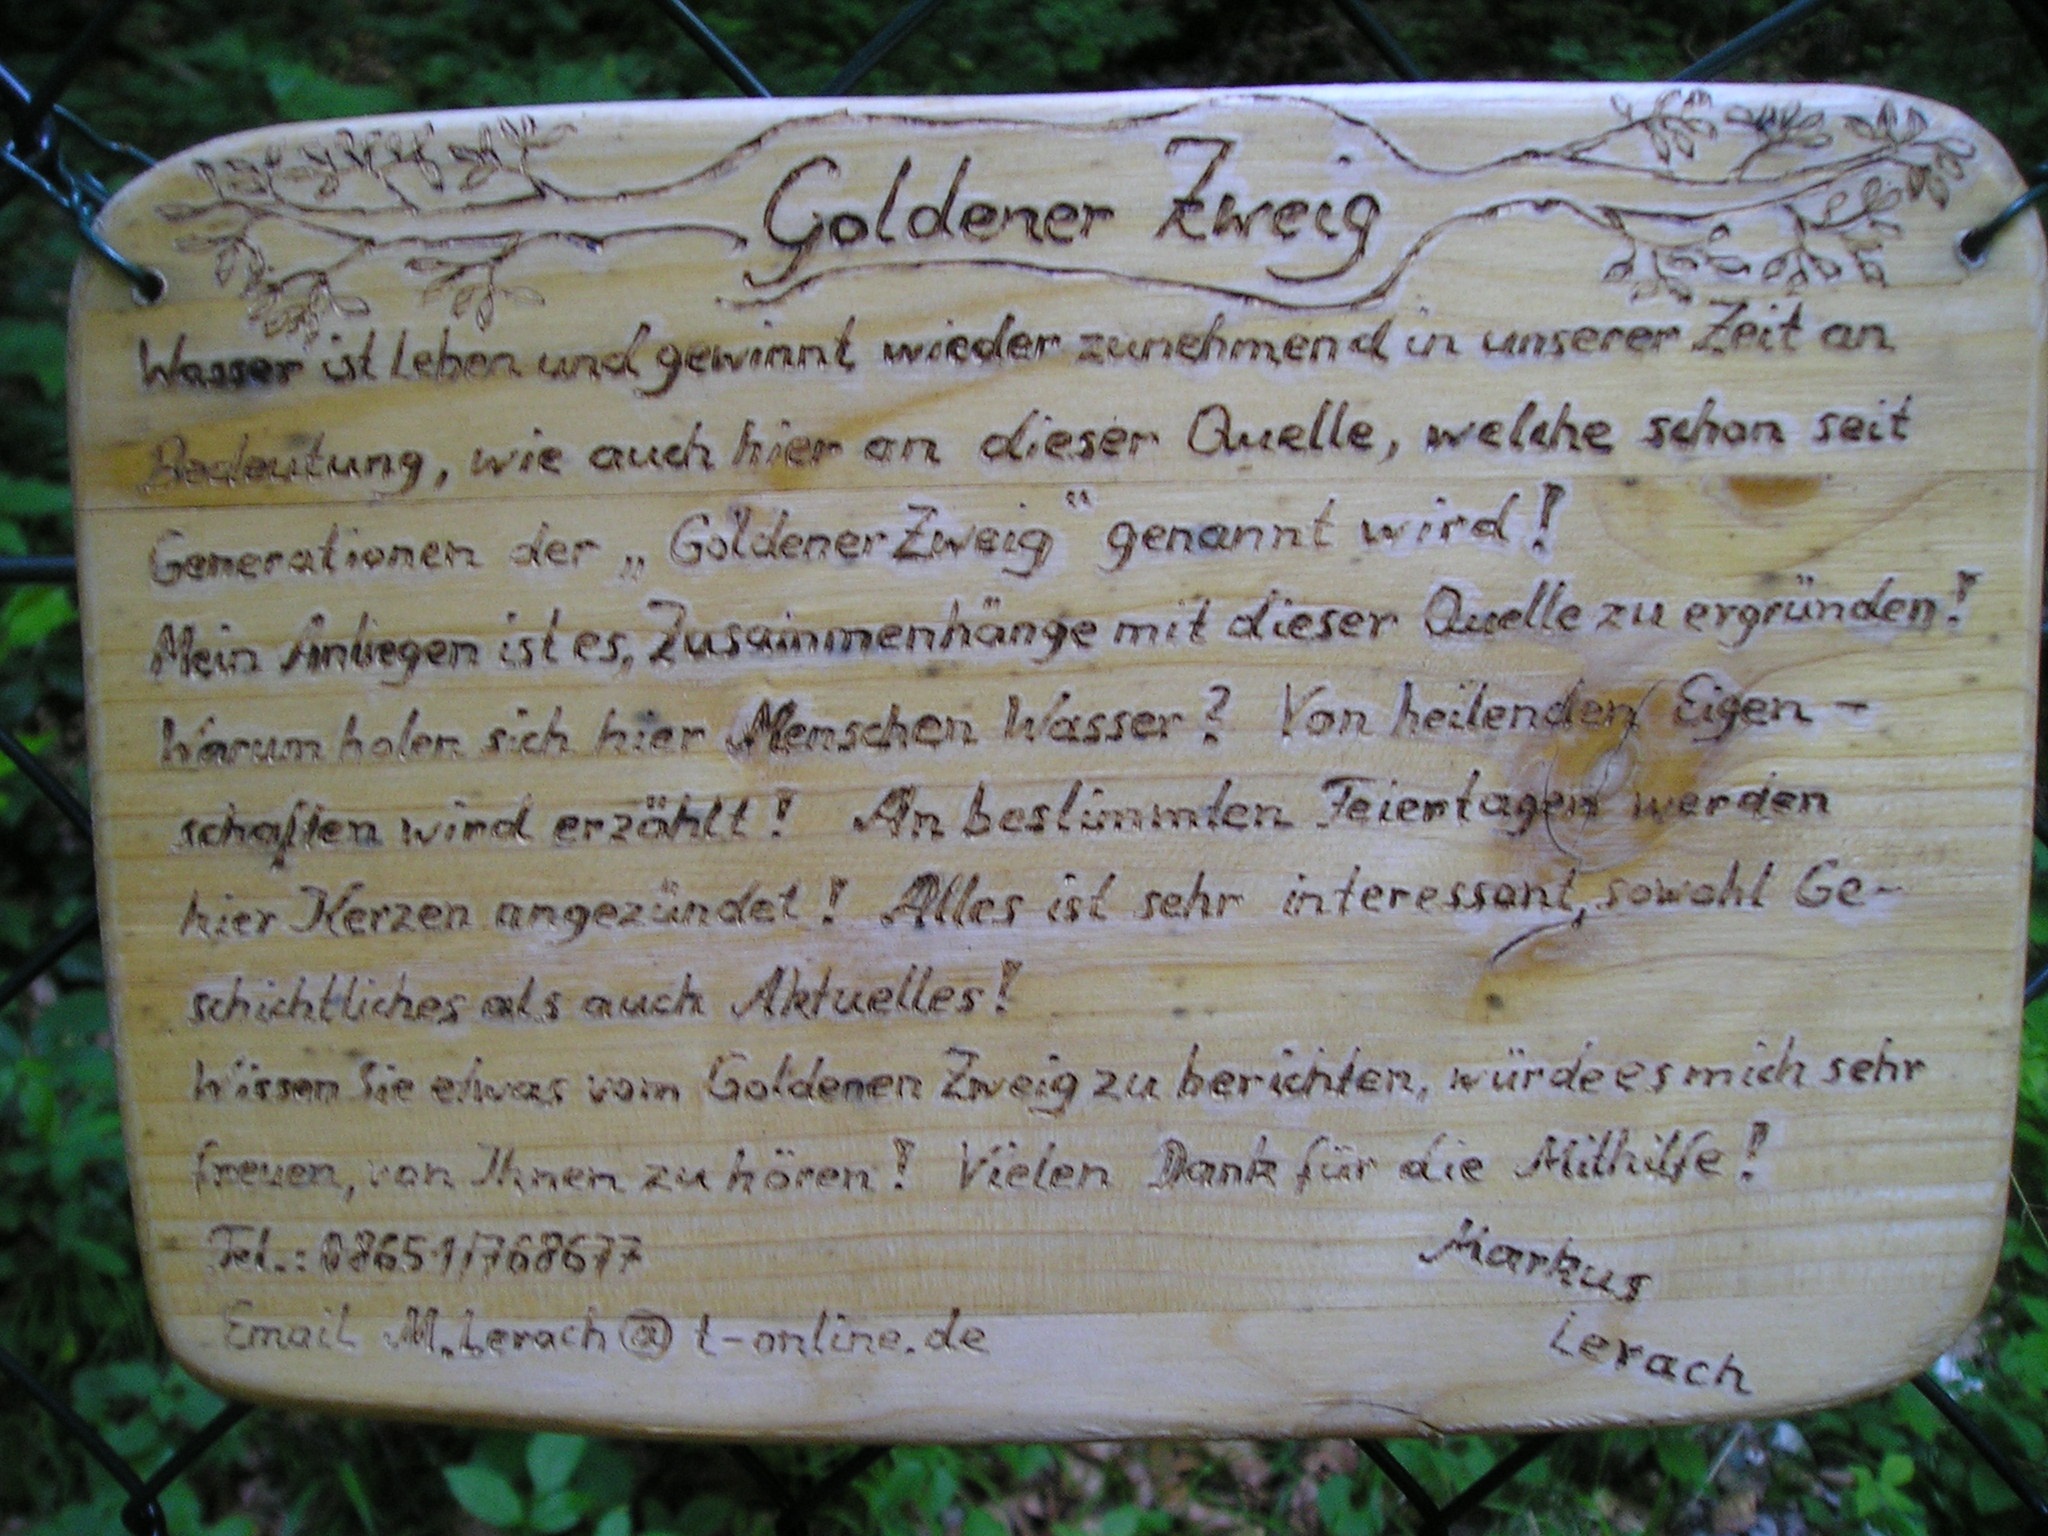 Goldener Zweig
Wasser ist Leben und gewinnt wieder zunehmend in unserer Zeit an
Bedeutung, wie auch hier an dieser Quelle, welche schon seit
Generationen der „Goldener Zweig" genannt wird!
Mein Anliegen ist es, Zusammenhänge mit dieser Quelle zu ergründen!
Warum holen sich hier Menschen Wasser? Von heilenden Eigen-
schaften wird erzählt! An bestimmten Feiertagen werden
hier Kerzen angezündet! Alles ist sehr interessant, sowohl Ge-
schichtliches als auch Aktuelles!
Wissen Sie etwas vom Goldenen Zweig zu berichten, würde es mich sehr
freuen, von Ihnen zu hören! Vielen Dank für die Mithilfe!
Tel.: 08651/768677
Markus
Email M.Lerach@t-online.de
Lerach